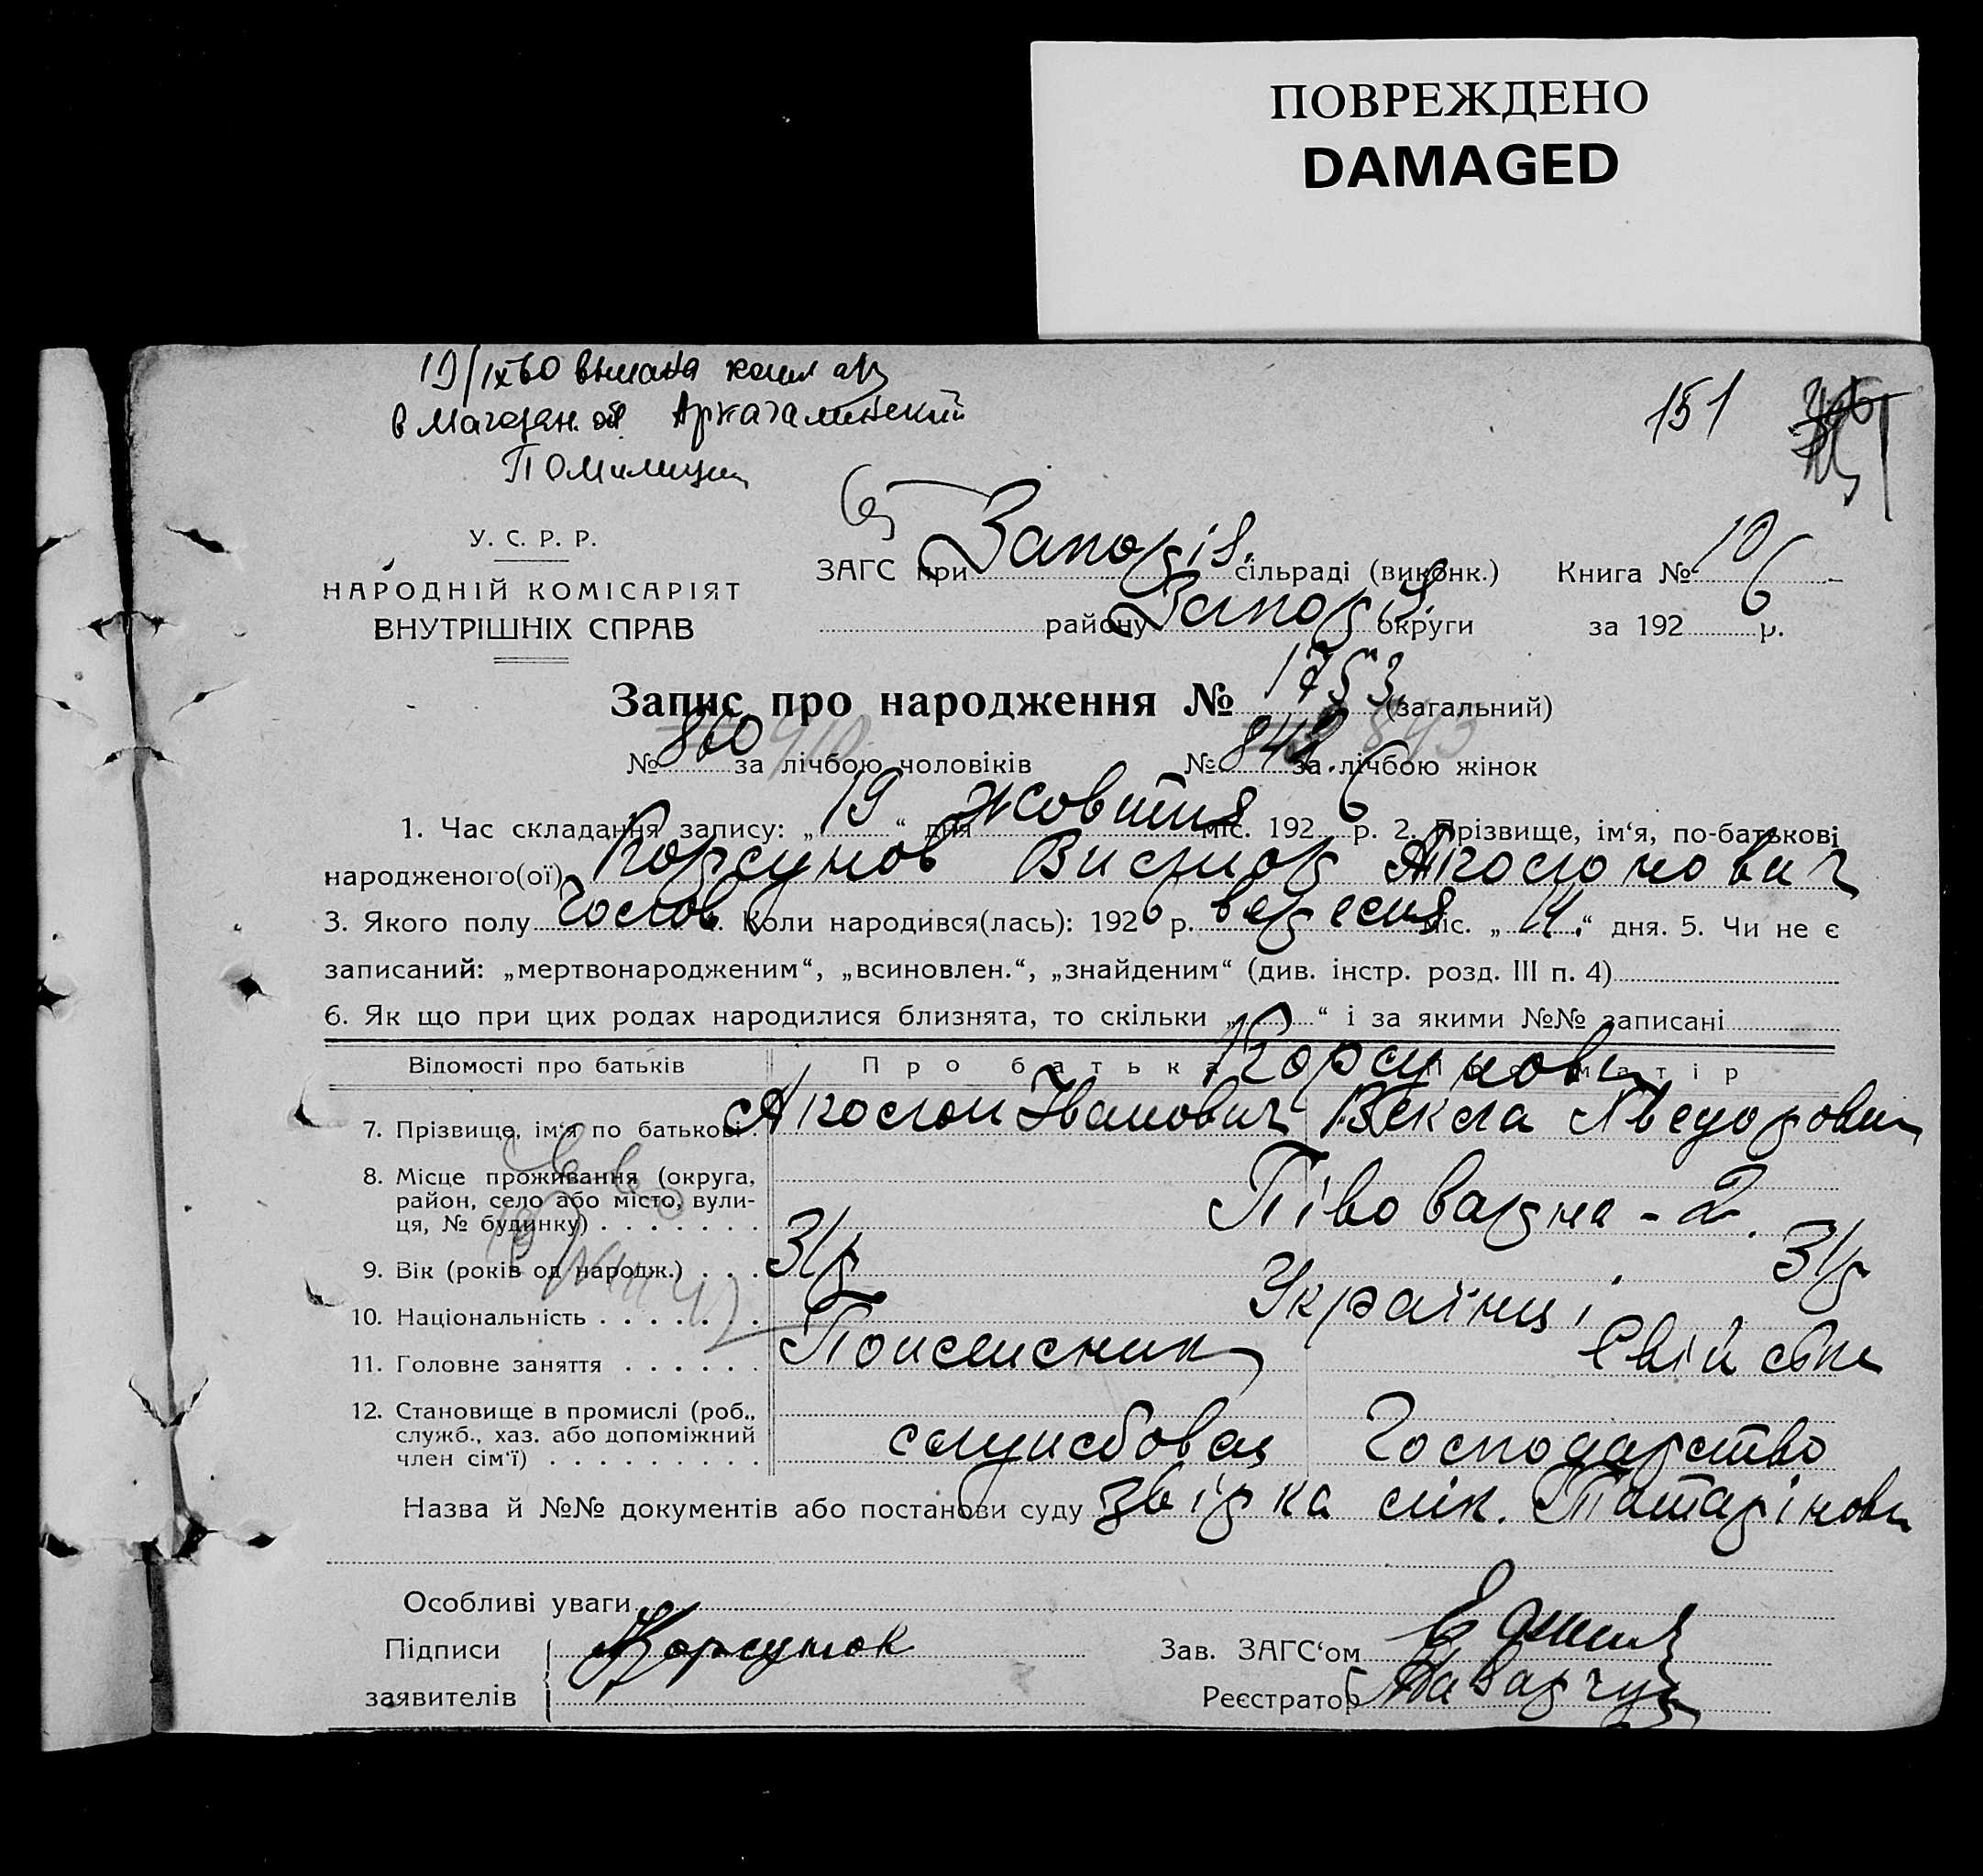 ПОВРЕЖДЕНО
DAMAGED
19/IX 60 выслана копия
в Магадан. об. Аркагалинский
П О Милиции
151
У. С. Р. Р.
НАРОДНІЙ КОМІСАРІЯТ
ВНУТРІШНІХ СПРАВ
ЗАГС при Запоріз. сільраді (виконк.) Книга № 10
району Запоріз. округи за 192 6 р.
Запис про народження № 1753 (загальний)
№ 860 за лічбою чоловіків № за лічбою жінок 843
1. Час складання запису: „ 19 “ дня жовтня міс. 192 6 р. 2. Прізвище, ім‘я, по-батькові
народженого(ої) Корсунов Виктор
3. Якого полу 4. Коли народився(лась): 192 6 р. вересня міс. „ “ дня. 5. Чи не є
записаний: „мертвонародженим“, „всиновлен.“, „знайденим“ (див. інстр. розд. III п. 4)
6. Як що при цих родах народилися близнята, то скільки „ “ і за якими №№ записані
Відомості про батьків Про батька Про матір
Корсунови
7. Прізвище, ім‘я по батькові Іванович Текла
8. Місце проживання (округа,
район, село або місто, вули-
ця, № будинку) Піво варна - 2.
9. Вік (років од народж.) 31 р 31 р
10. Національність Українці
11. Головне заняття
12. Становище в промислі (роб.,
служб., хаз. або допоміжний
член сім‘ї) службовец Господарство
Назва й №№ документів або постанови суду довідка лік. Татарінови
Особливі уваги
Підписи Корсунов Зав. ЗАГС‘ом
заявителів Реєстратор